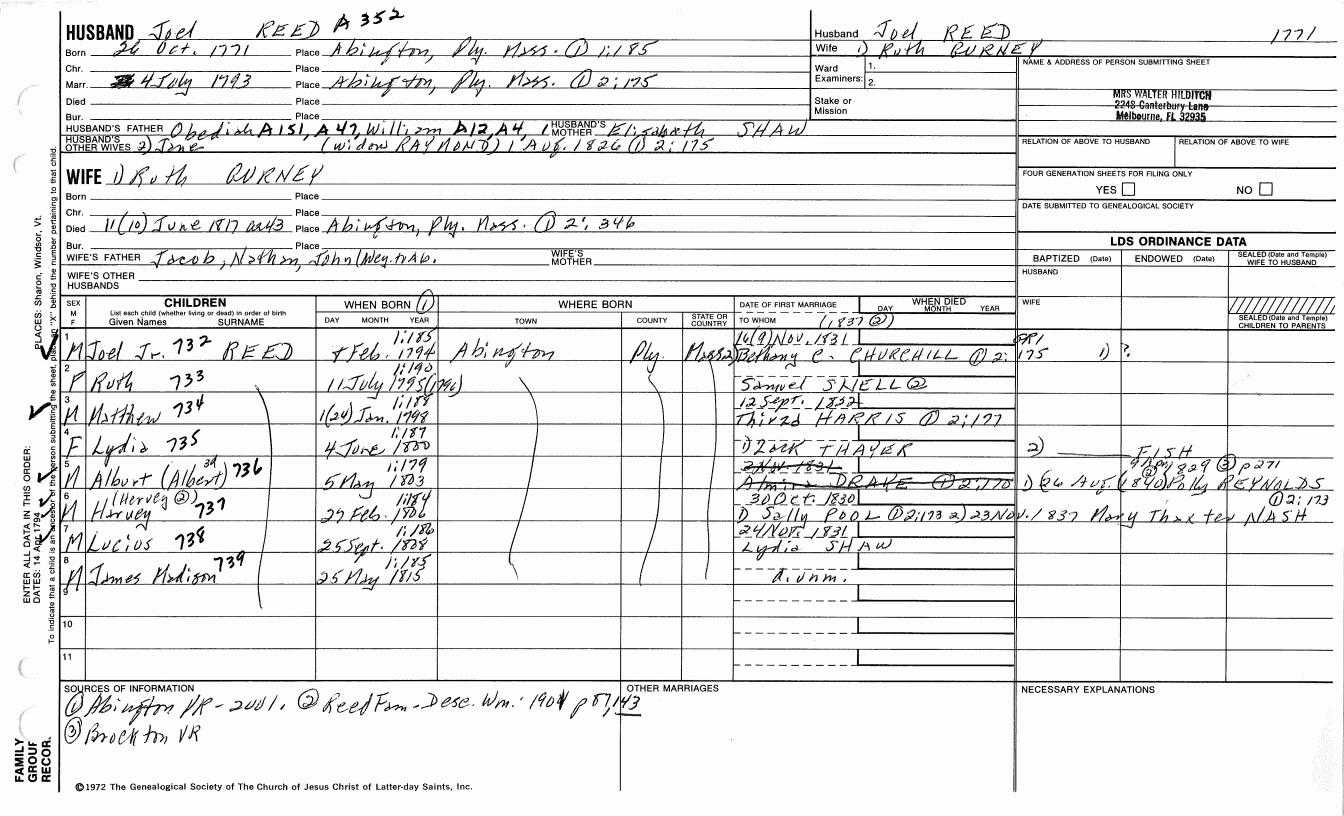 HUSBAND Joel REED A 352
Born 26 Oct. 1771 Place Abington, Ply. Mass. ① 1:185
Chr. Place
Marr. 4 July 1793 Place Abington, Ply. Mass. ① 2:175
Died Place
Bur. Place
HUSBAND'S FATHER Obediah A151, A47, William A12, A4, 1 HUSBAND'S MOTHER Elizabeth SHAW
HUSBAND'S OTHER WIVES 2) Jane (widow RAYMOND) 1 Aug. 1826 ① 2:175
Husband Joel REED 1771
Wife 1) Ruth GURNEY
Ward Examiners: 1.
2.
Stake or Mission
NAME & ADDRESS OF PERSON SUBMITTING SHEET
MRS WALTER HILDITCH
2248 Canterbury Lane
Melbourne, FL 32935
RELATION OF ABOVE TO HUSBAND RELATION OF ABOVE TO WIFE
FOUR GENERATION SHEETS FOR FILING ONLY
YES NO
DATE SUBMITTED TO GENEALOGICAL SOCIETY
WIFE 1) Ruth GURNEY
Born Place
Chr. Place
Died 11(10) June 1817 aa43 Place Abington, Ply. Mass. ① 2:346
Bur. Place
WIFE'S FATHER Jacob, Nathan, John (Wey. to Ab. WIFE'S MOTHER
WIFE'S OTHER HUSBANDS
LDS ORDINANCE DATA
BAPTIZED (Date) ENDOWED (Date) SEALED (Date and Temple) WIFE TO HUSBAND
HUSBAND
WIFE
SEALED (Date and Temple) CHILDREN TO PARENTS
SEX M F CHILDREN WHEN BORN ① WHERE BORN DATE OF FIRST MARRIAGE WHEN DIED
List each child (whether living or dead) in order of birth
Given Names SURNAME DAY MONTH YEAR TOWN COUNTY STATE OR COUNTRY TO WHOM DAY MONTH YEAR
(1837 ②)
1 1:185 16(9) Nov. 1831
M Joel Jr. 732 REED Feb. 1794 Abington Ply. Mass 2) Bethany C. CHURCHILL ① 2:175 1) ?
2 1:190
F Ruth 733 11 July 1795 (1796) Samuel SNELL ②
3 1:188 12 Sept. 1832
M Matthew 734 1(24) Jan. 1798 Thirza HARRIS ① 2:177
4 1:187
F Lydia 735 4 June 1800 1) Zack THAYER 2) FISH
5 1:179 2 Nov. 1821 9 Apr 1829 ③ p271
M Alburt (Albert) 3d 736 5 May 1803 Almira DRAKE ① 2:170 1) (26 Aug. (1840) ② Polly REYNOLDS ① 2:173
6 (Hervey ②) 1:184 30 Oct. 1830
M Harvey 737 27 Feb. 1806 1) Sally POOL ① 2:173 2) 23 Nov. 1837 Mary Thaxter NASH
7 1:186 24 Nov. 1831
M Lucius 738 25 Sept. 1808 Lydia SHAW
8 1:185
M James Madison 739 25 May 1815 d. unm.
9
10
11
SOURCES OF INFORMATION
① Abington VR - 2001. ② Reed Fam - Desc. Wm. 1901 p 87, 143
③ Brockton VR
OTHER MARRIAGES
NECESSARY EXPLANATIONS
©1972 The Genealogical Society of The Church of Jesus Christ of Latter-day Saints, Inc.
FAMILY GROUP RECOR.
ENTER ALL DATA IN THIS ORDER:
DATES: 14 Apr 1794 PLACES: Sharon, Windsor, Vt.
To indicate that a child is an ancestor of the person submitting the sheet, place an "X" behind the number pertaining to that child.